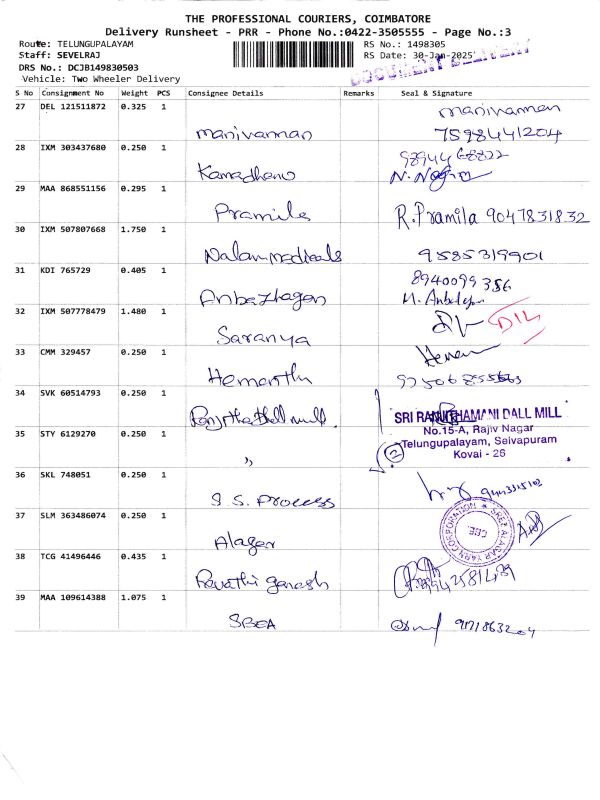 THE PROFESSIONAL COURIERS, COIMBATORE
Delivery Runsheet - PRR - Phone No.:0422-3505555 - Page No.:3
Route: TELUNGUPALAYAM RS No.: 1498305
Staff: SEVELRAJ RS Date: 30-Jan-2025
DOCUMENT DELIVERY
DRS No.: DCJB149830503
Vehicle: Two Wheeler Delivery
S No Consignment No Weight PCS Consignee Details Remarks Seal & Signature
27 DEL 121511872 0.325 1 manivannan manivannan
7598441204
28 IXM 303437680 0.250 1 Kamadhenu
29 MAA 868551156 0.295 1 Pramila R.Pramila 9047831832
30 IXM 507807668 1.750 1 Nalam medicals 9585319901
31 KDI 765729 0.405 1 Anbazhagan 8940099386
32 IXM 507778479 1.480 1 Saranya
33 CMM 329457 0.250 1 Hemanth
34 SVK 60514793 0.250 1 mill SRI DALL MILL
No.15-A, Rajiv Nagar
35 STY 6129270 0.250 1 ,, Telungupalayam, Selvapuram
Kovai - 26
2
36 SKL 748051 0.250 1 S.S. Process
37 SLM 363486074 0.250 1 Alagar SREE ALAGAR YARN CORPORATION
CBE.
38 TCG 41496446 0.435 1 Revathi ganesh
39 MAA 109614388 1.075 1 SBEA